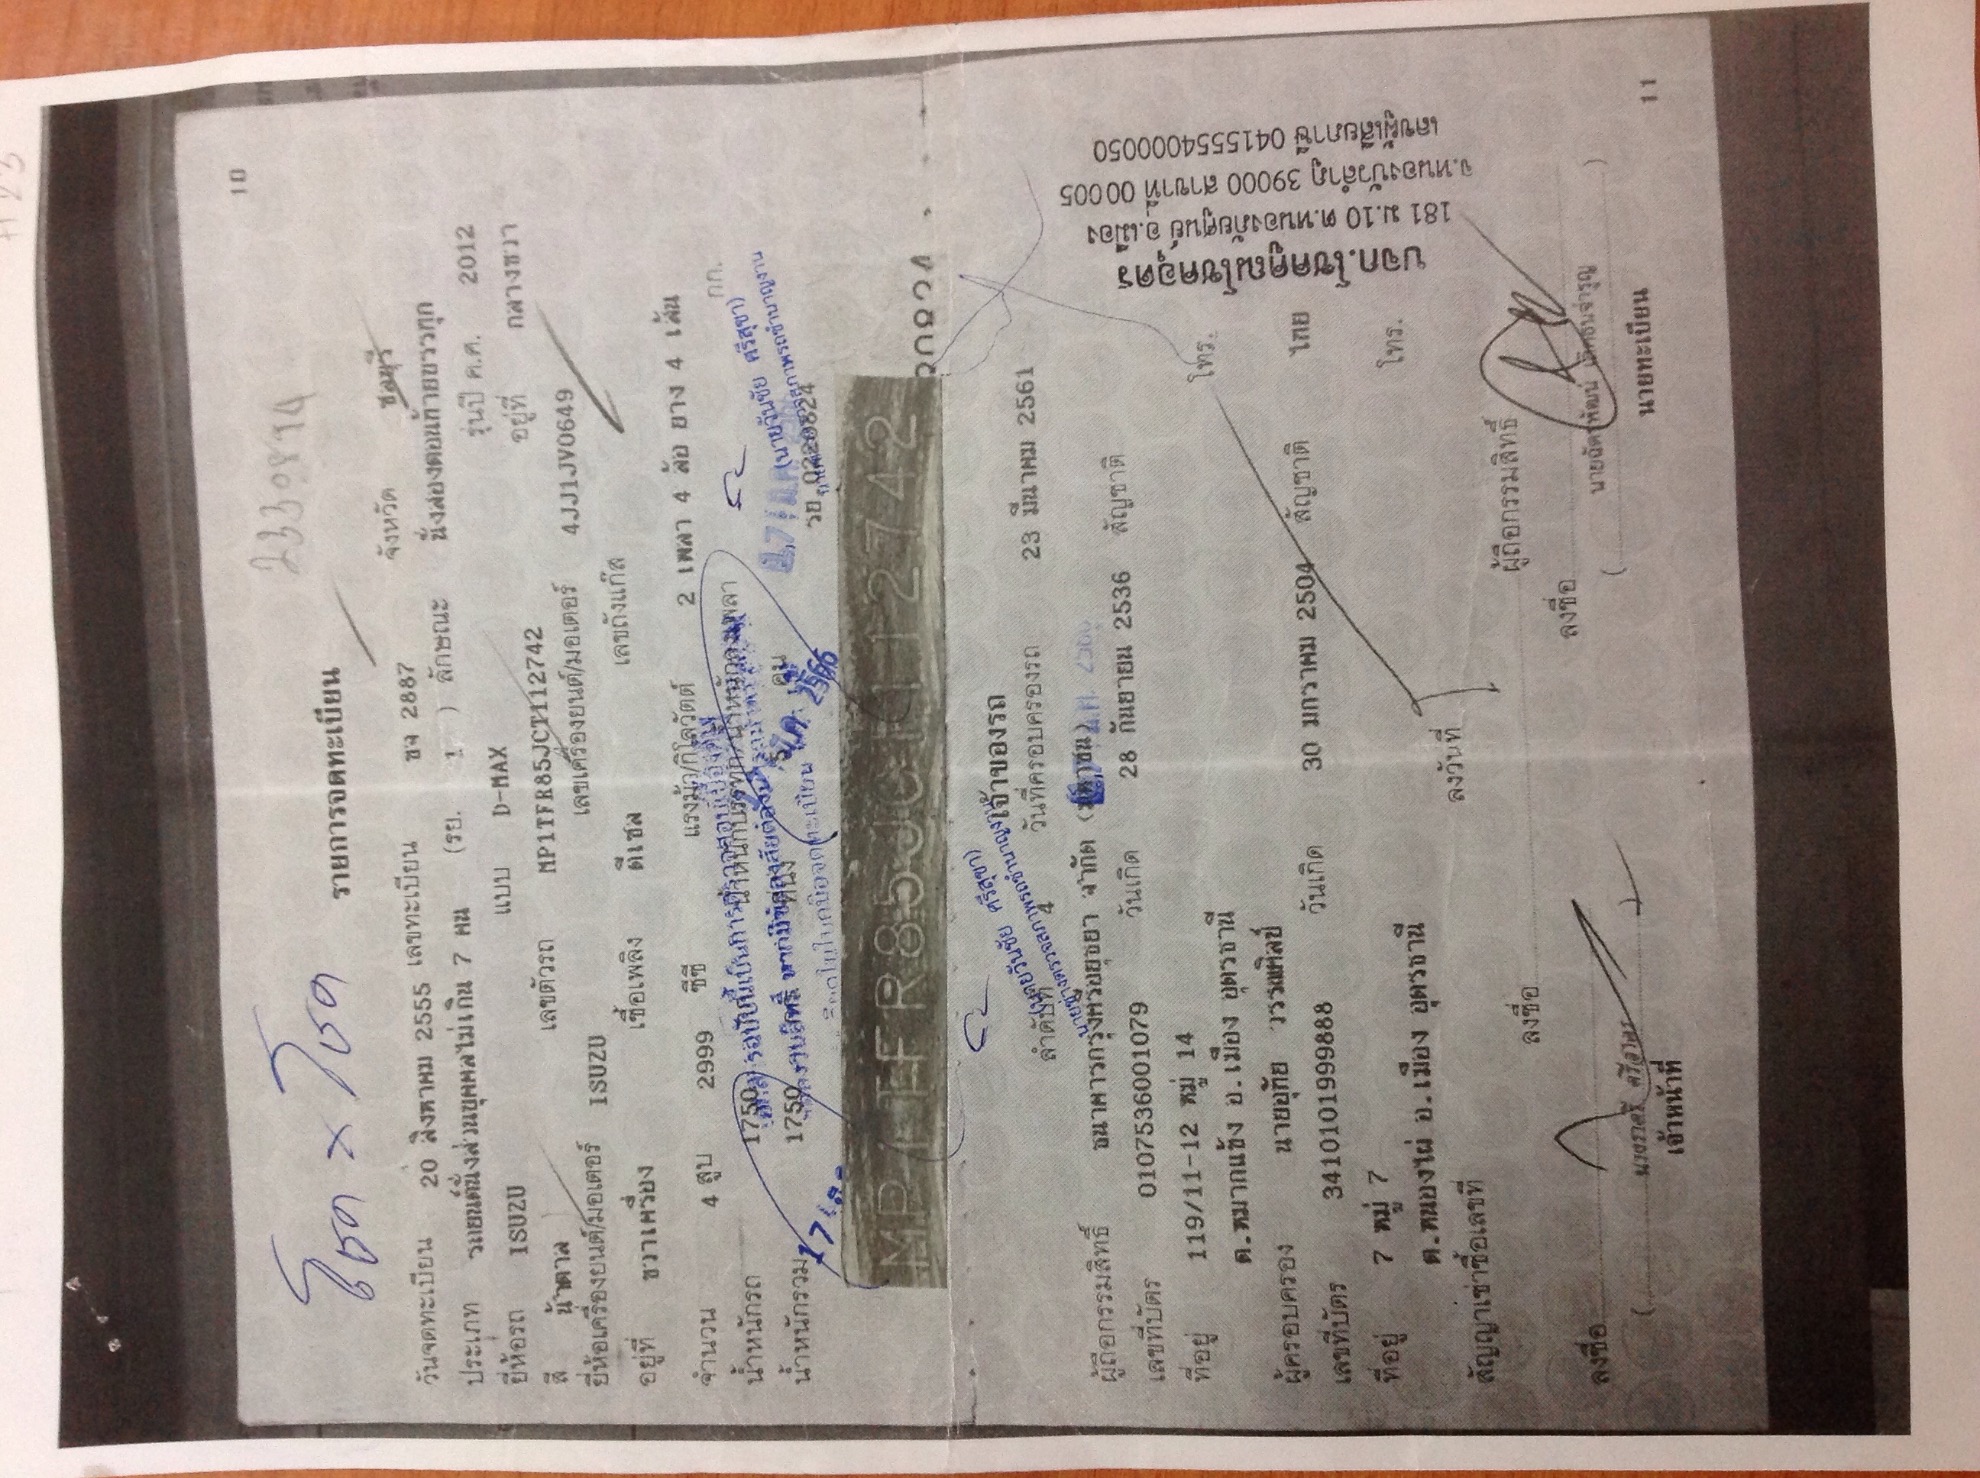 10
2330894
โชค × โชค
รายการจดทะเบียน
วันจดทะเบียน 20 สิงหาคม 2555 เลขทะเบียน ขจ 2887 จังหวัด ชลบุรี
ประเภท รถยนต์นั่งส่วนบุคคลไม่เกิน 7 คน (รย. 1 ) ลักษณะ นั่งสองตอนท้ายบรรทุก
ยี่ห้อรถ ISUZU แบบ D-MAX รุ่นปี ค.ศ. 2012
สี น้ำตาล เลขตัวรถ MP1TFR85JCT112742 อยู่ที่ กลางขวา
ยี่ห้อเครื่องยนต์/มอเตอร์ ISUZU เลขเครื่องยนต์/มอเตอร์ 4JJ1JV0649
อยู่ที่ ขวาเครื่อง เชื้อเพลิง ดีเซล เลขถังแก๊ส
จำนวน 4 สูบ 2999 ซีซี แรงม้า/กิโลวัตต์ 2 เพลา 4 ล้อ ยาง 4 เส้น
น้ำหนักรถ 1750 กก.
น้ำหนักรวม 1750 ที่นั่ง 5 คน
(นายวันชัย ศรีสุขา)
รย 0220824
MP1TFR85JCT112742
เจ้าของรถ
(นายวันชัย ศรีสุขา)
ลำดับที่ 4 วันที่ครอบครองรถ 23 มีนาคม 2561
ผู้ถือกรรมสิทธิ์ ธนาคารกรุงศรีอยุธยา จำกัด (มหาชน)
เลขที่บัตร 0107536001079 วันเกิด 28 กันยายน 2536 สัญชาติ
ที่อยู่ 119/11-12 หมู่ 14 โทร.
ต.หมากแข้ง อ.เมือง อุดรธานี
ผู้ครอบครอง นายอุทัย วรรณศิลป์
เลขที่บัตร 3410101999888 วันเกิด 30 มกราคม 2504 สัญชาติ ไทย
ที่อยู่ 7 หมู่ 7 โทร.
ต.หนองไผ่ อ.เมือง อุดรธานี
สัญญาเช่าซื้อเลขที่ ลงวันที่
ลงชื่อ ผู้ถือกรรมสิทธิ์
ลงชื่อ ลงชื่อ
เจ้าหน้าที่ นายทะเบียน
11
บจก.โชคคูณโชคอุดร
181 ม.10 ต.หนองภัยศูนย์ อ.เมือง
จ.หนองบัวลำภู 39000 สาขาที่ 00005
เลขผู้เสียภาษี 0415554000050